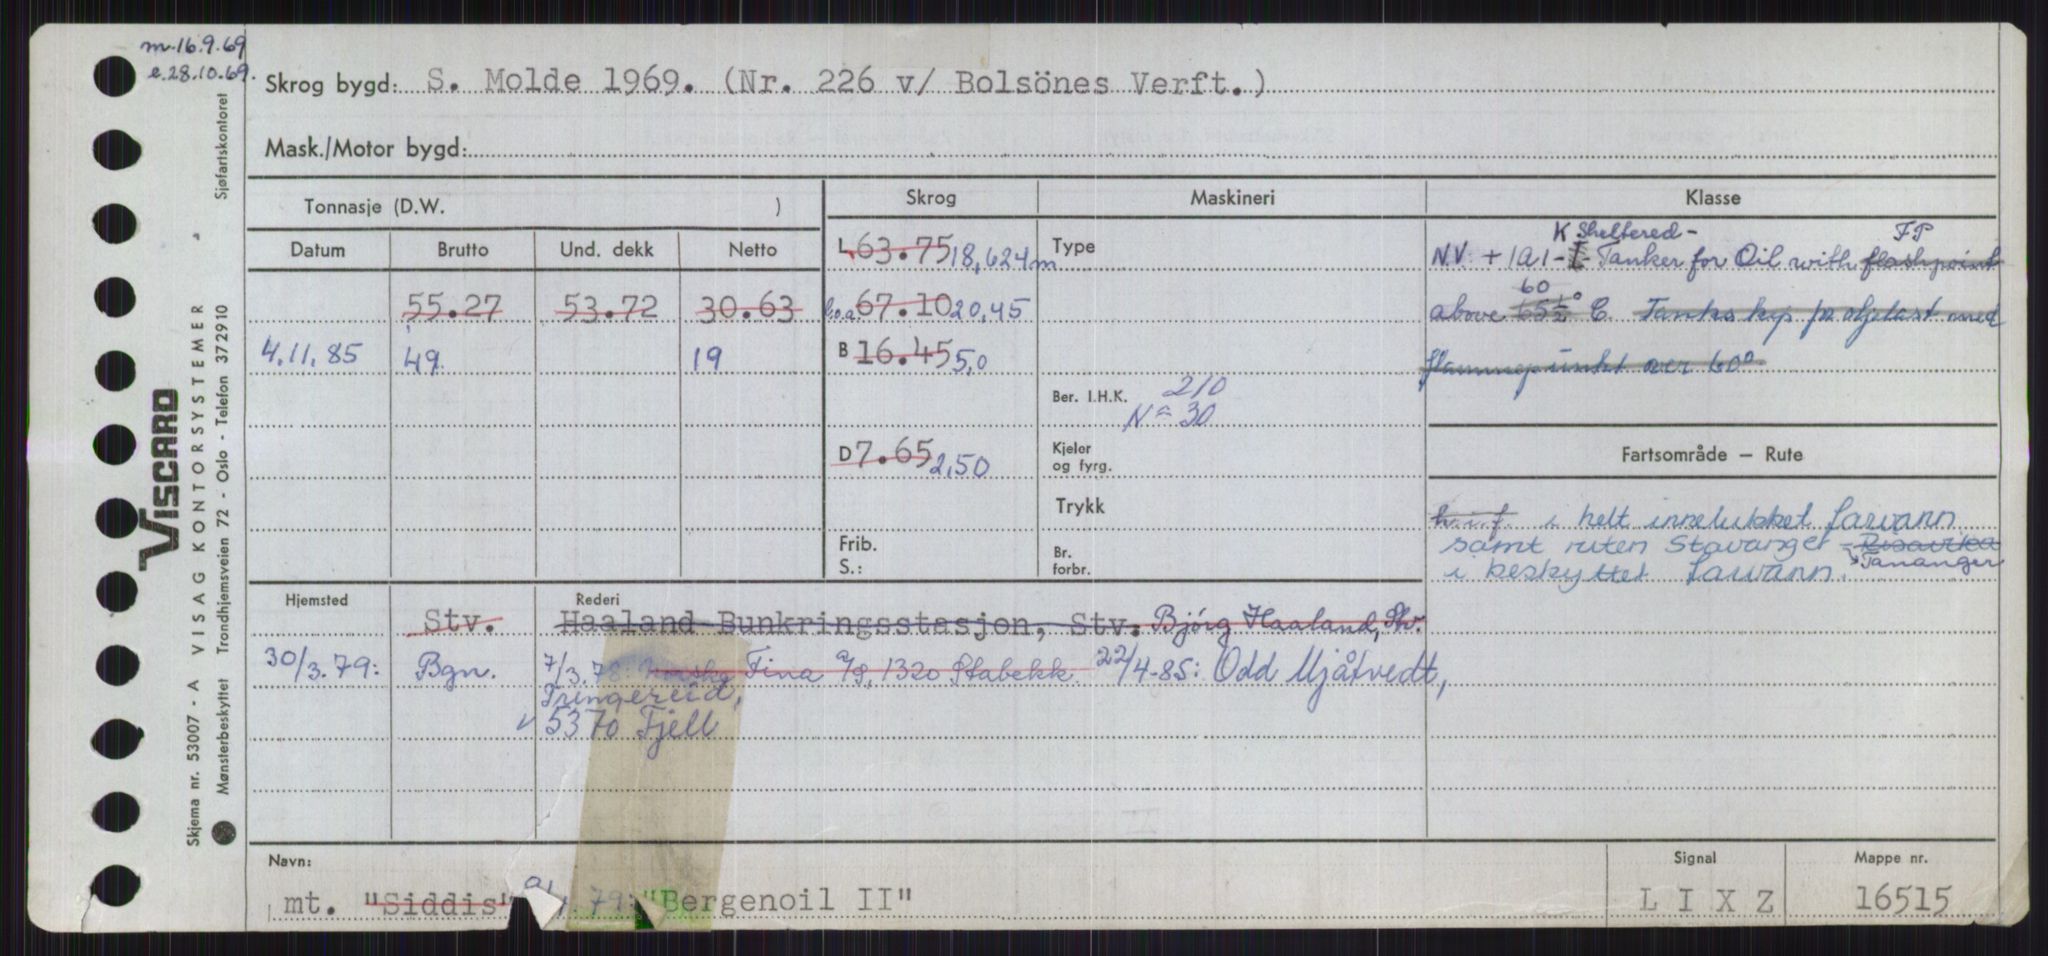 m.16.9.69
e.28.10.69.
Skrog bygd: S. Molde 1969. (Nr. 226 v/ Bolsönes Verft.)
Mask./Motor bygd:
Tonnasje (D.W. )
Skrog
Maskineri
Klasse
Datum
Brutto
Und. dekk
Netto
55.27
53.72
30.63
4.11.85
49
19
L 63.75 18,624m
l.o.a. 67.10 20,45
B 16.45 5,0
D 7.65 2,50
Frib.
S.:
Type
Ber. I.H.K. 210
Nª 30
Kjeler
og fyrg.
Trykk
Br.
forbr.
K Sheltered - FP
N.V. + 1A1 - I - Tanker for Oil with flashpoint
60
above 65½° C. Tankskip for oljelast med
flammepunkt over 60°
Fartsområde – Rute
h.i.f. i helt innelukket farvann
samt ruten Stavanger - Risavika
Tananger
i beskyttet farvann.
Hjemsted
Rederi
Stv.
Haaland Bunkringsstasjon, Stv. Bjørg Haaland, Stv.
30/3.79: Bgn.
7/3.78: Norske Fina a/s, 1320 Stabekk 22/4-85: Odd Mjåtvedt,
Tringereid,
✓ 5370 Fjell
Navn:
mt. "Siddis" 79: "Bergenoil II"
Signal
L I X Z
Mappe nr.
16515
VISCARD
Skjema nr. 53007 - A VISAG KONTORSYSTEMER
Mønsterbeskyttet Trondhjemsveien 72 - Oslo - Telefon 372910 Sjøfartskontoret